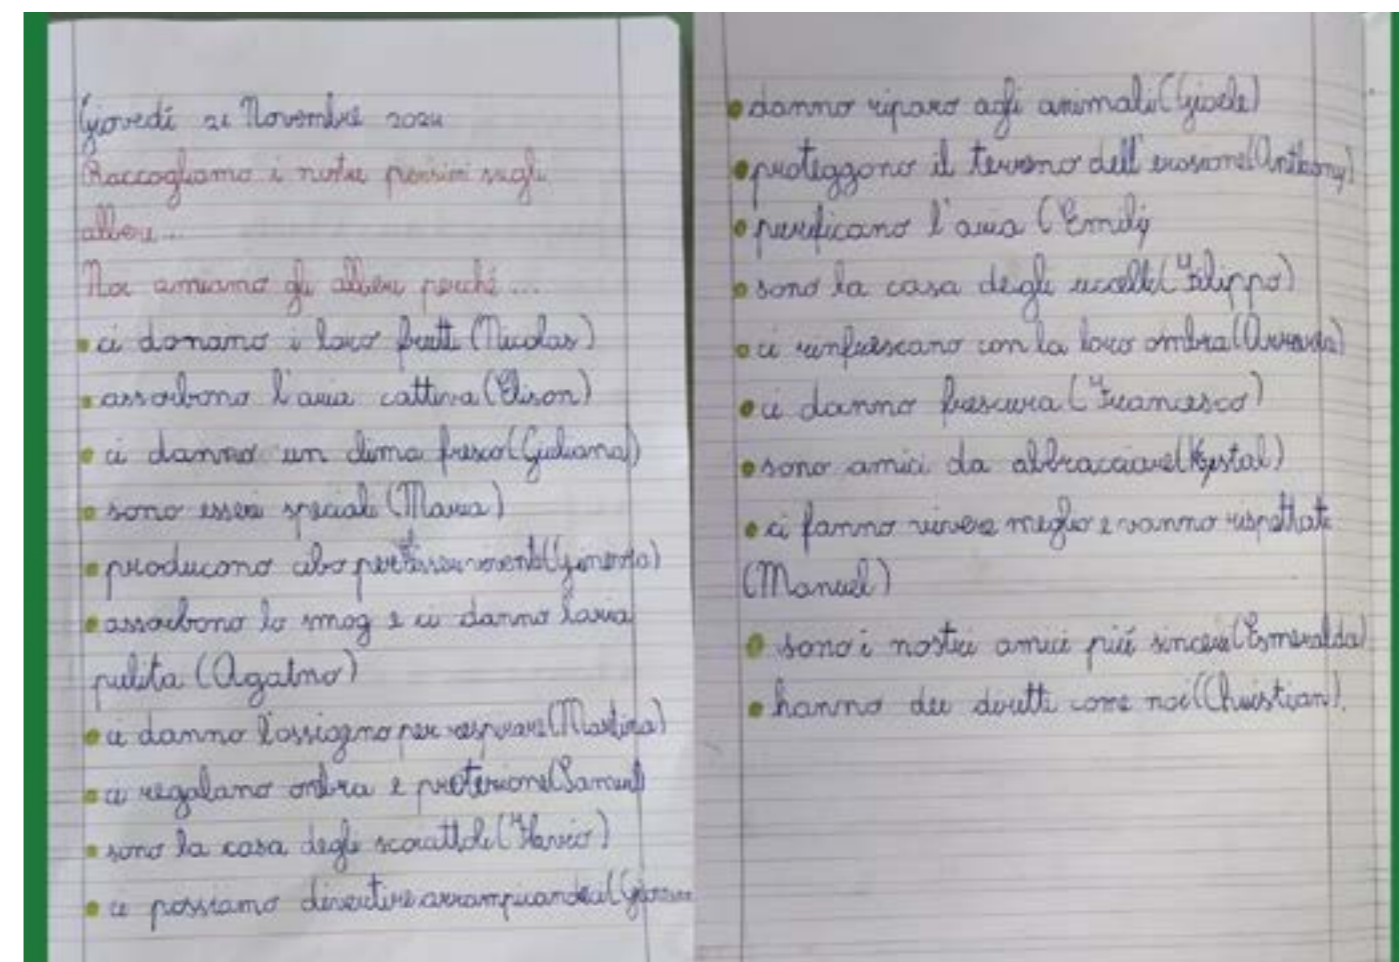 Giovedì 21 Novembre 2024
Raccogliamo i nostri pensieri sugli
alberi...
Noi amiamo gli alberi perché ...
• ci donano i loro frutti (Nicolas)
• assorbono l'aria cattiva (Elison)
• ci danno un clima fresco (Giuliana)
• sono esseri speciali (Maria)
• producono cibo per esseri viventi (Ginevra)
• assorbono lo smog e ci danno l'aria
pulita (Agatino)
• ci danno l'ossigeno per respirare (Martina)
• ci regalano ombra e protezione (Samuel)
• sono la casa degli scoiattoli (Flavio)
• ci possiamo divertire arrampicandoci
• danno riparo agli animali (Gioele)
• proteggono il terreno dell'erosione (Anthony)
• purificano l'aria (Emily
• sono la casa degli uccelli (Filippo)
• ci rinfrescano con la loro ombra
• ci danno frescura (Francesco)
• sono amici da abbracciare (Krystal)
• ci fanno vivere meglio e vanno rispettati
(Manuel)
• sono i nostri amici più sinceri (Esmeralda)
• hanno dei diritti come noi (Christian).